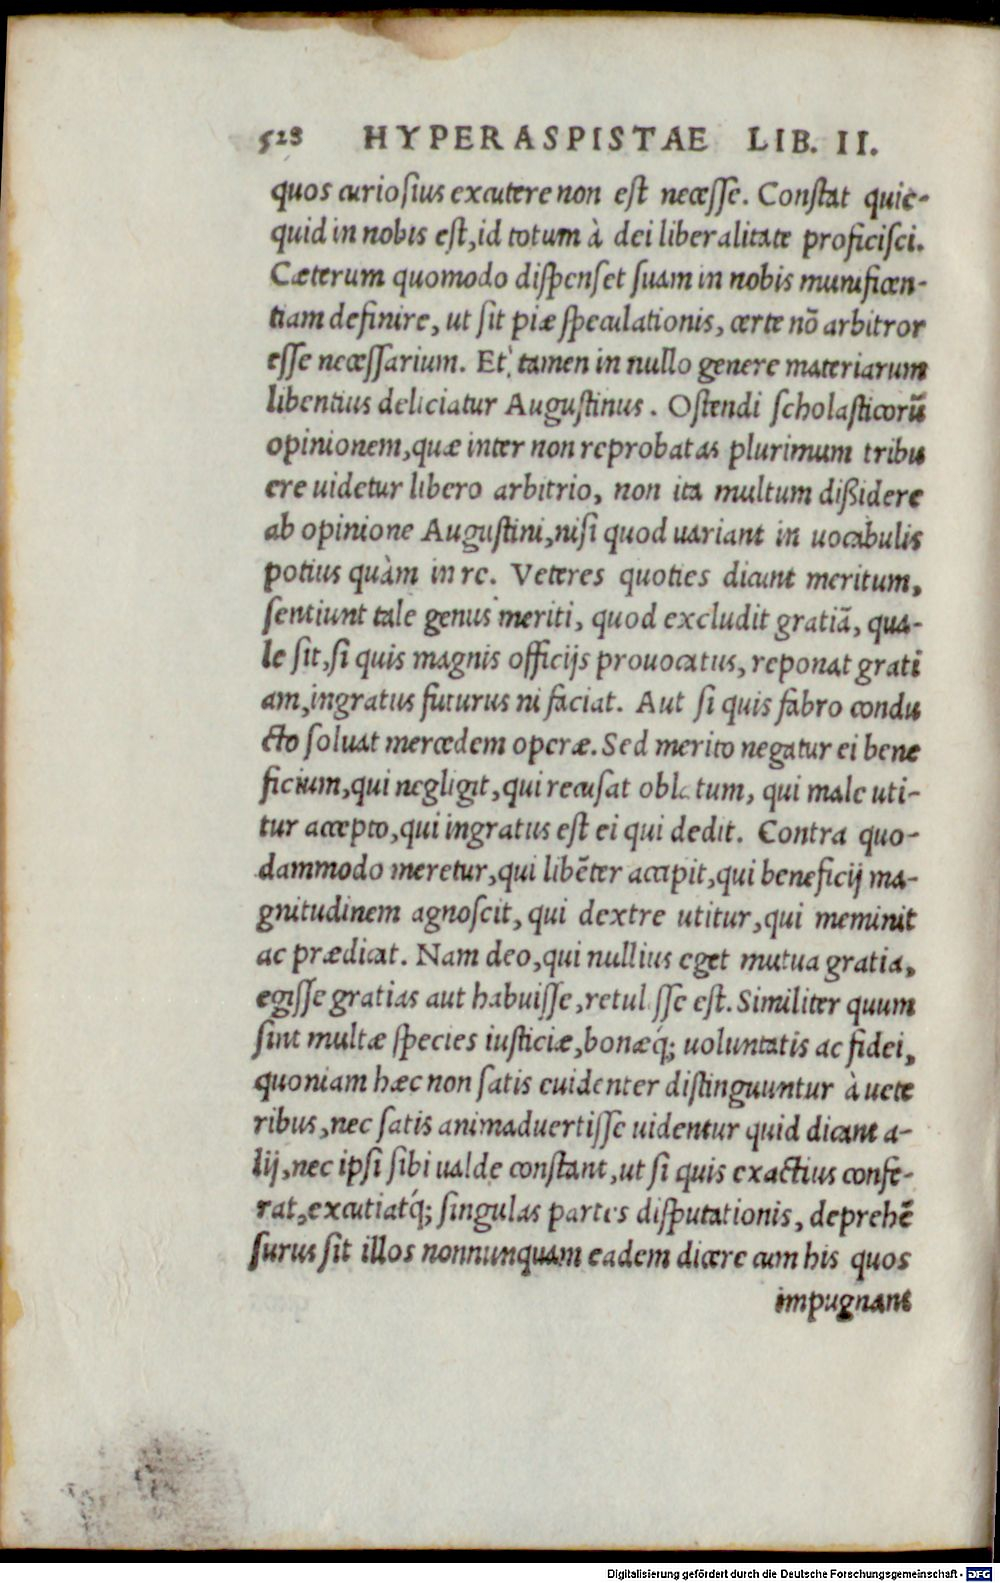 528 HYPERASPISTAE LIB. II.
quos curiosius excutere non est necesse. Constat quic-
quid in nobis est, id totum à dei liberalitate proficisci.
Cæterum quomodo dispenset suam in nobis munificen-
tiam definire, ut sit piæ speculationis, certe nō arbitror
esse necessarium. Et tamen in nullo genere materiarum
libentius deliciatur Augustinus. Ostendi scholasticorū
opinionem, quæ inter non reprobatas plurimum tribu
ere uidetur libero arbitrio, non ita multum dißidere
ab opinione Augustini, nisi quod uariant in uocabulis
potius quàm in re. Veteres quoties dicunt meritum,
sentiunt tale genus meriti, quod excludit gratiā, qua-
le sit, si quis magnis officijs prouocatus, reponat grati
am, ingratus futurus ni faciat. Aut si quis fabro condu
cto soluat mercedem operæ. Sed merito negatur ei bene
ficium, qui negligit, qui recusat oblatum, qui male uti-
tur accepto, qui ingratus est ei qui dedit. Contra quo-
dammodo meretur, qui libēter accipit, qui beneficij ma-
gnitudinem agnoscit, qui dextre utitur, qui meminit
ac prædicat. Nam deo, qui nullius eget mutua gratia,
egisse gratias aut habuisse, retulisse est. Similiter quum
sint multæ species iusticiæ, bonæq́; uoluntatis ac fidei,
quoniam hæc non satis euidenter distinguuntur à uete
ribus, nec satis animaduertisse uidentur quid dicant a-
lij, nec ipsi sibi ualde constant, ut si quis exactius confe-
rat, excutiatq́; singulas partes disputationis, deprehē
surus sit illos nonnunquam eadem dicere cum his quos
impugnant
Digitalisierung gefördert durch die Deutsche Forschungsgemeinschaft - DFG